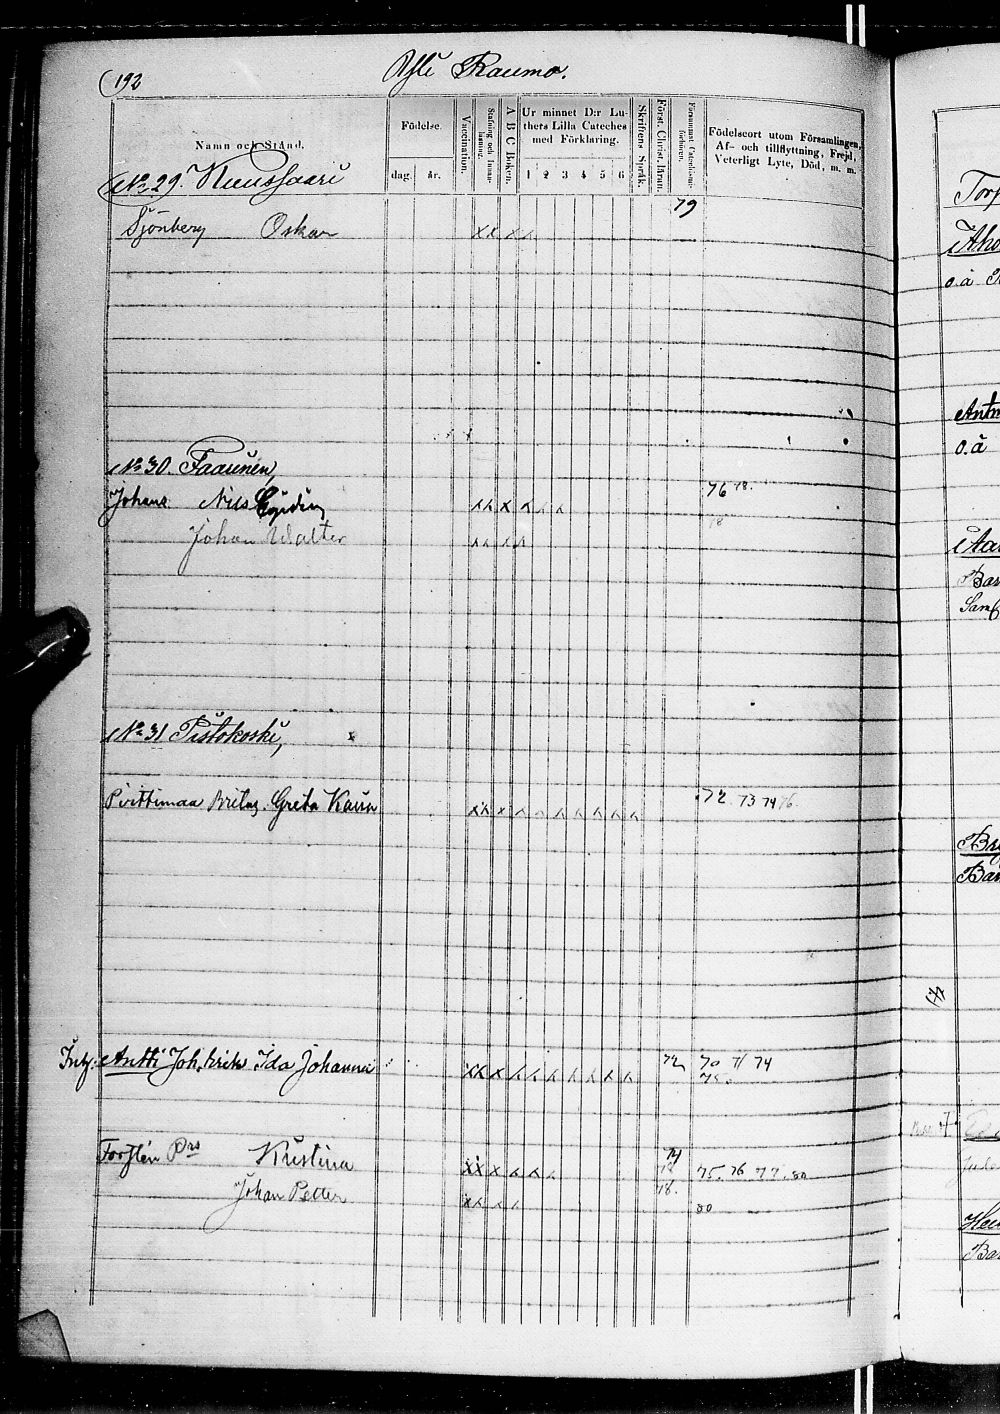 192 Rauma.
Namn och Stånd.
Födelse.
dag. år.
Vaccination.
Stafning och Innanläsning.
A B C Boken.
Ur minnet D:r Luthers Lilla Cateches med Förklaring.
1 2 3 4 5 6
Skriftens Språk.
Först. Christ. Årun.
Försummat Catechismiförhören.
Födelseort utom Församlingen, Af- och tillflyttning, Frejd, Veterligt Lyte, Död, m. m.
No 29. Kuussaari
79
Sjönberg Oskar x x x x
No 30. Faaunen,
Johans Nils x x x x x x 76 78.
Johan Walter x x x x 78
No 31 Pistokoski,
Greta Kaisa x x x x x x x x x x 72. 73 74 76.
Antti Joh. Ida Johanna x x x x x x x x x x 72 70 71 74
75
Forstén Kristina x x x x x x 74 78 75. 76. 77. 80
Johan Petter x x x x 78. 80
Torp
Aho
o.ä
Antt
o.ä
Bar
Bar
Bar